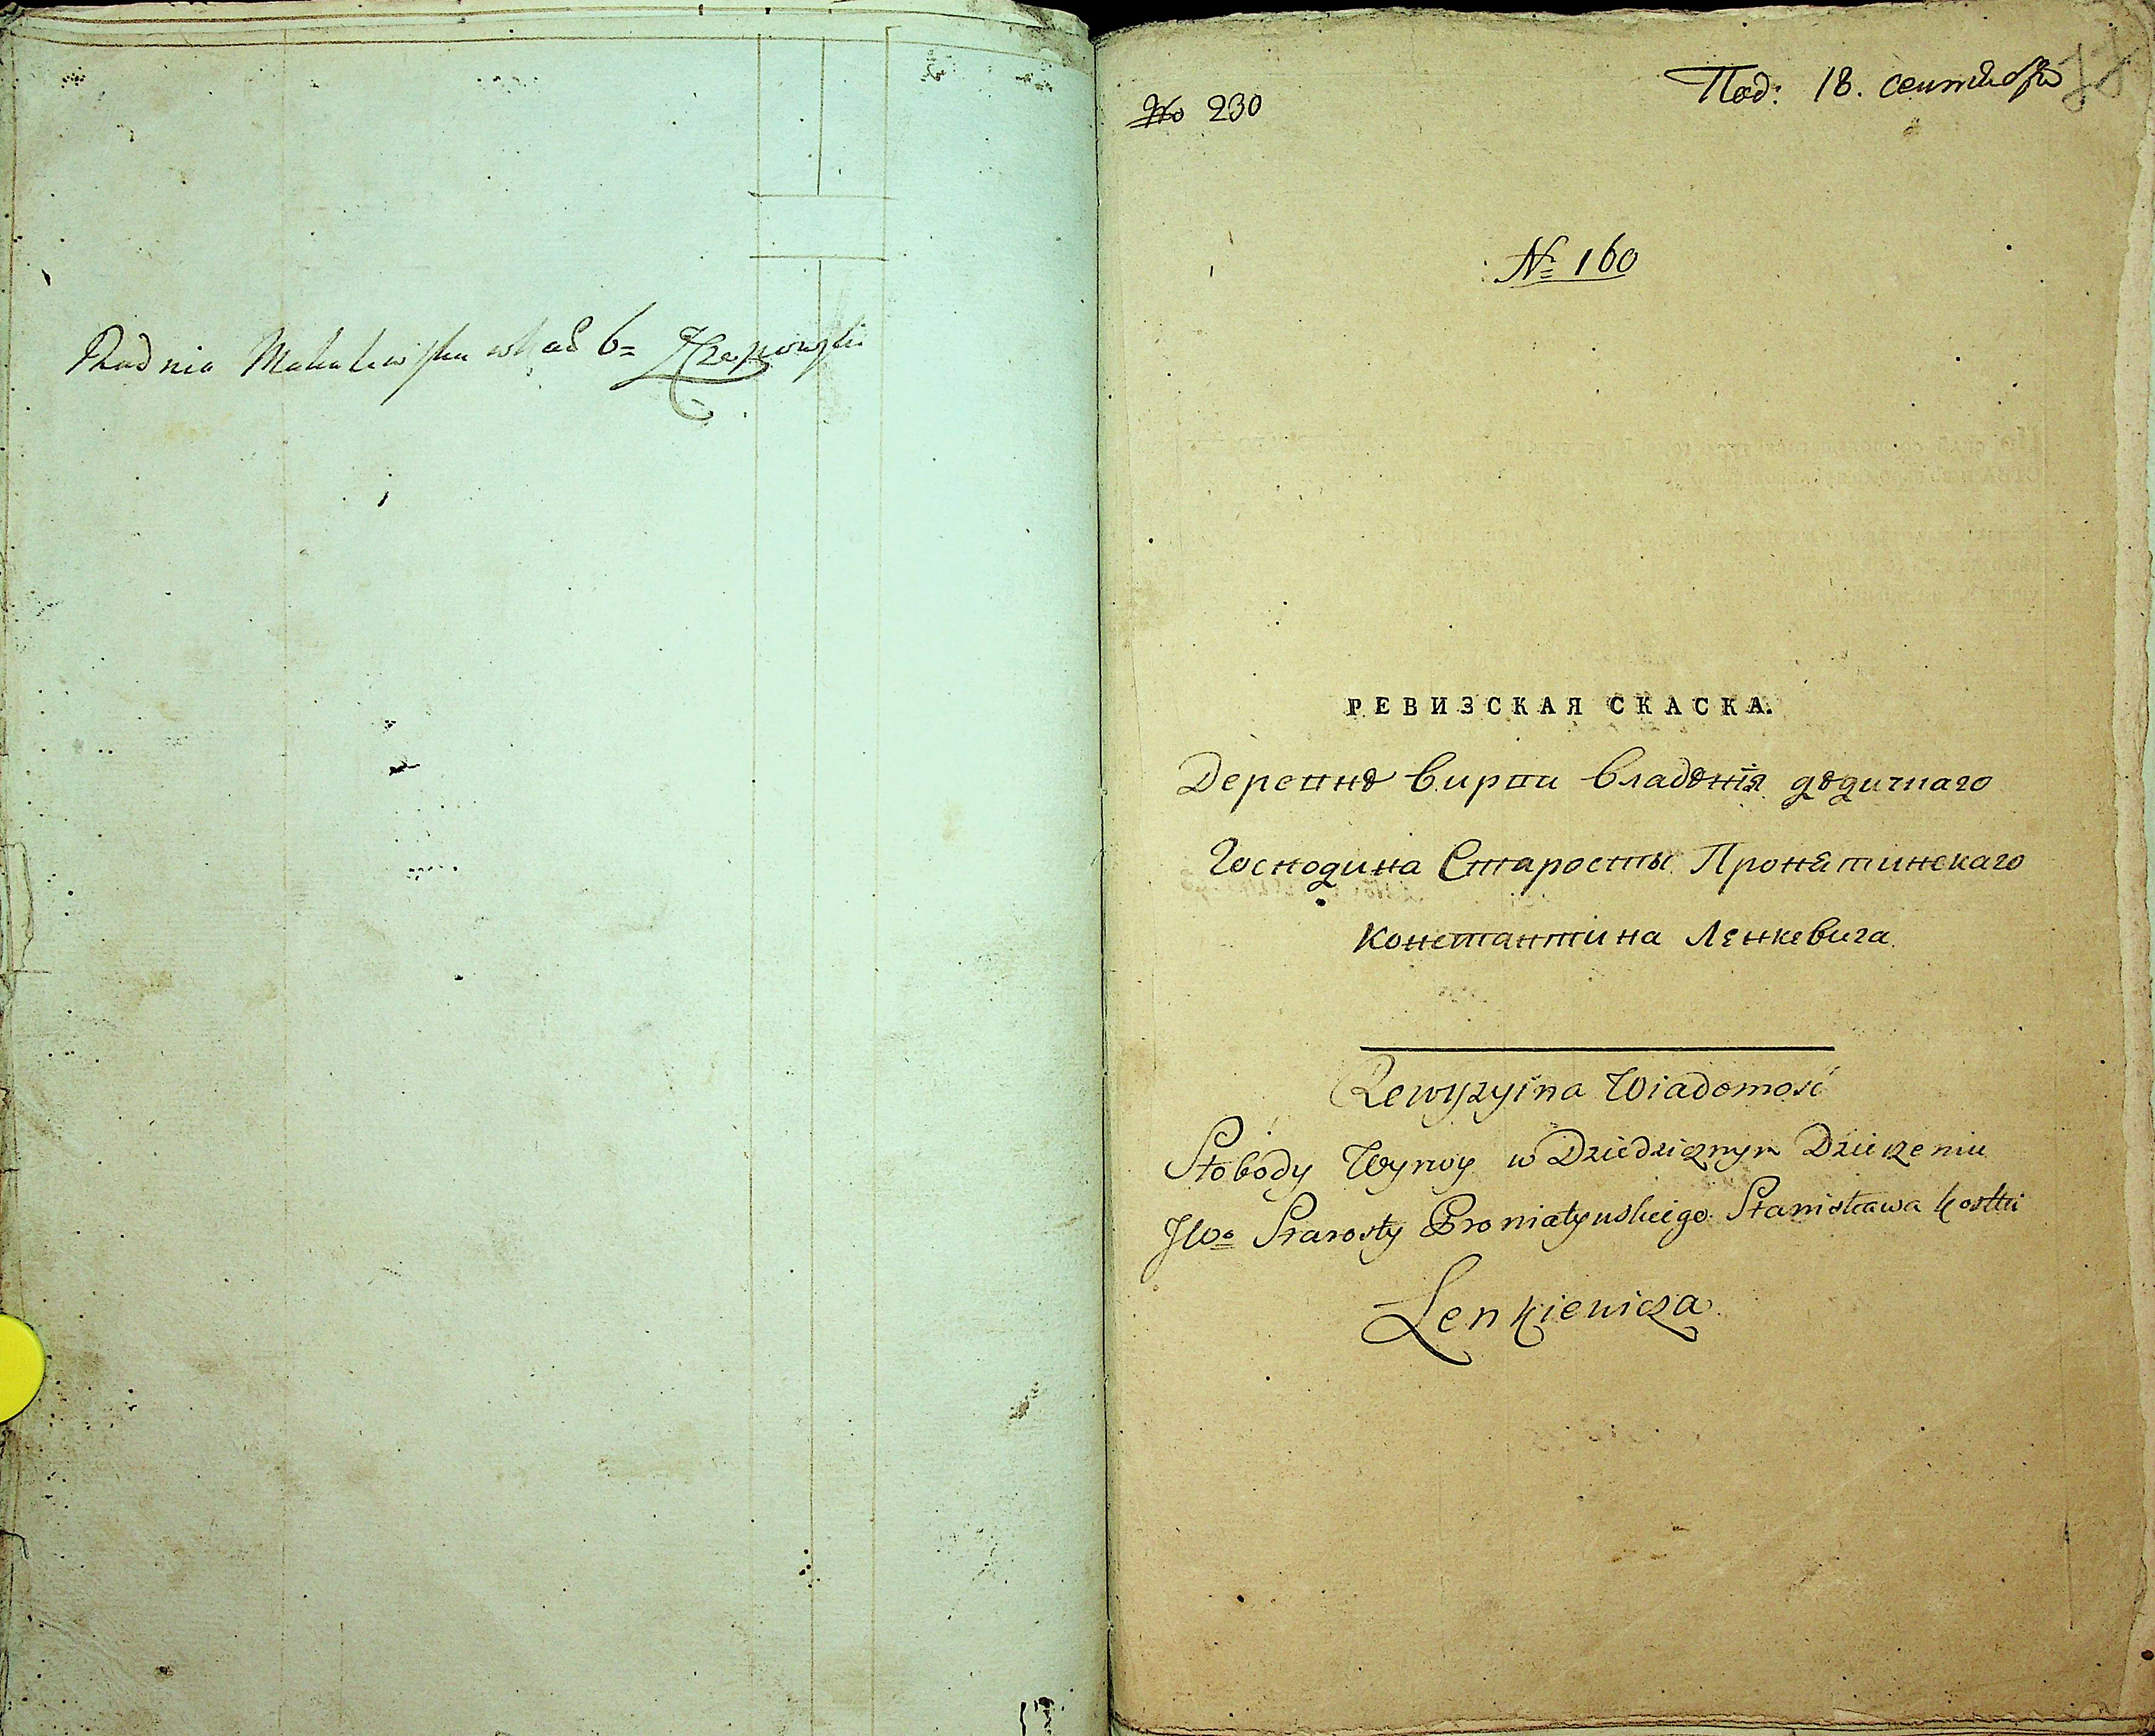 Rudnia Makalewska wład b= Hrapowski
No 230
Под: 18. сентября
№ 160
РЕВИЗСКАЯ СКАСКА.
Деревнѣ вирви владѣнія дѣдичнаго
Господина Старосты Пронятинскаго
Константина Ленкевича
Rewyzyina Wiadomość
Słobody Wyrwy w Dziedzicznym Dzierżeniu
JWo Starosty Proniatynskiego Stanisława Kostki
Lenkiewicza